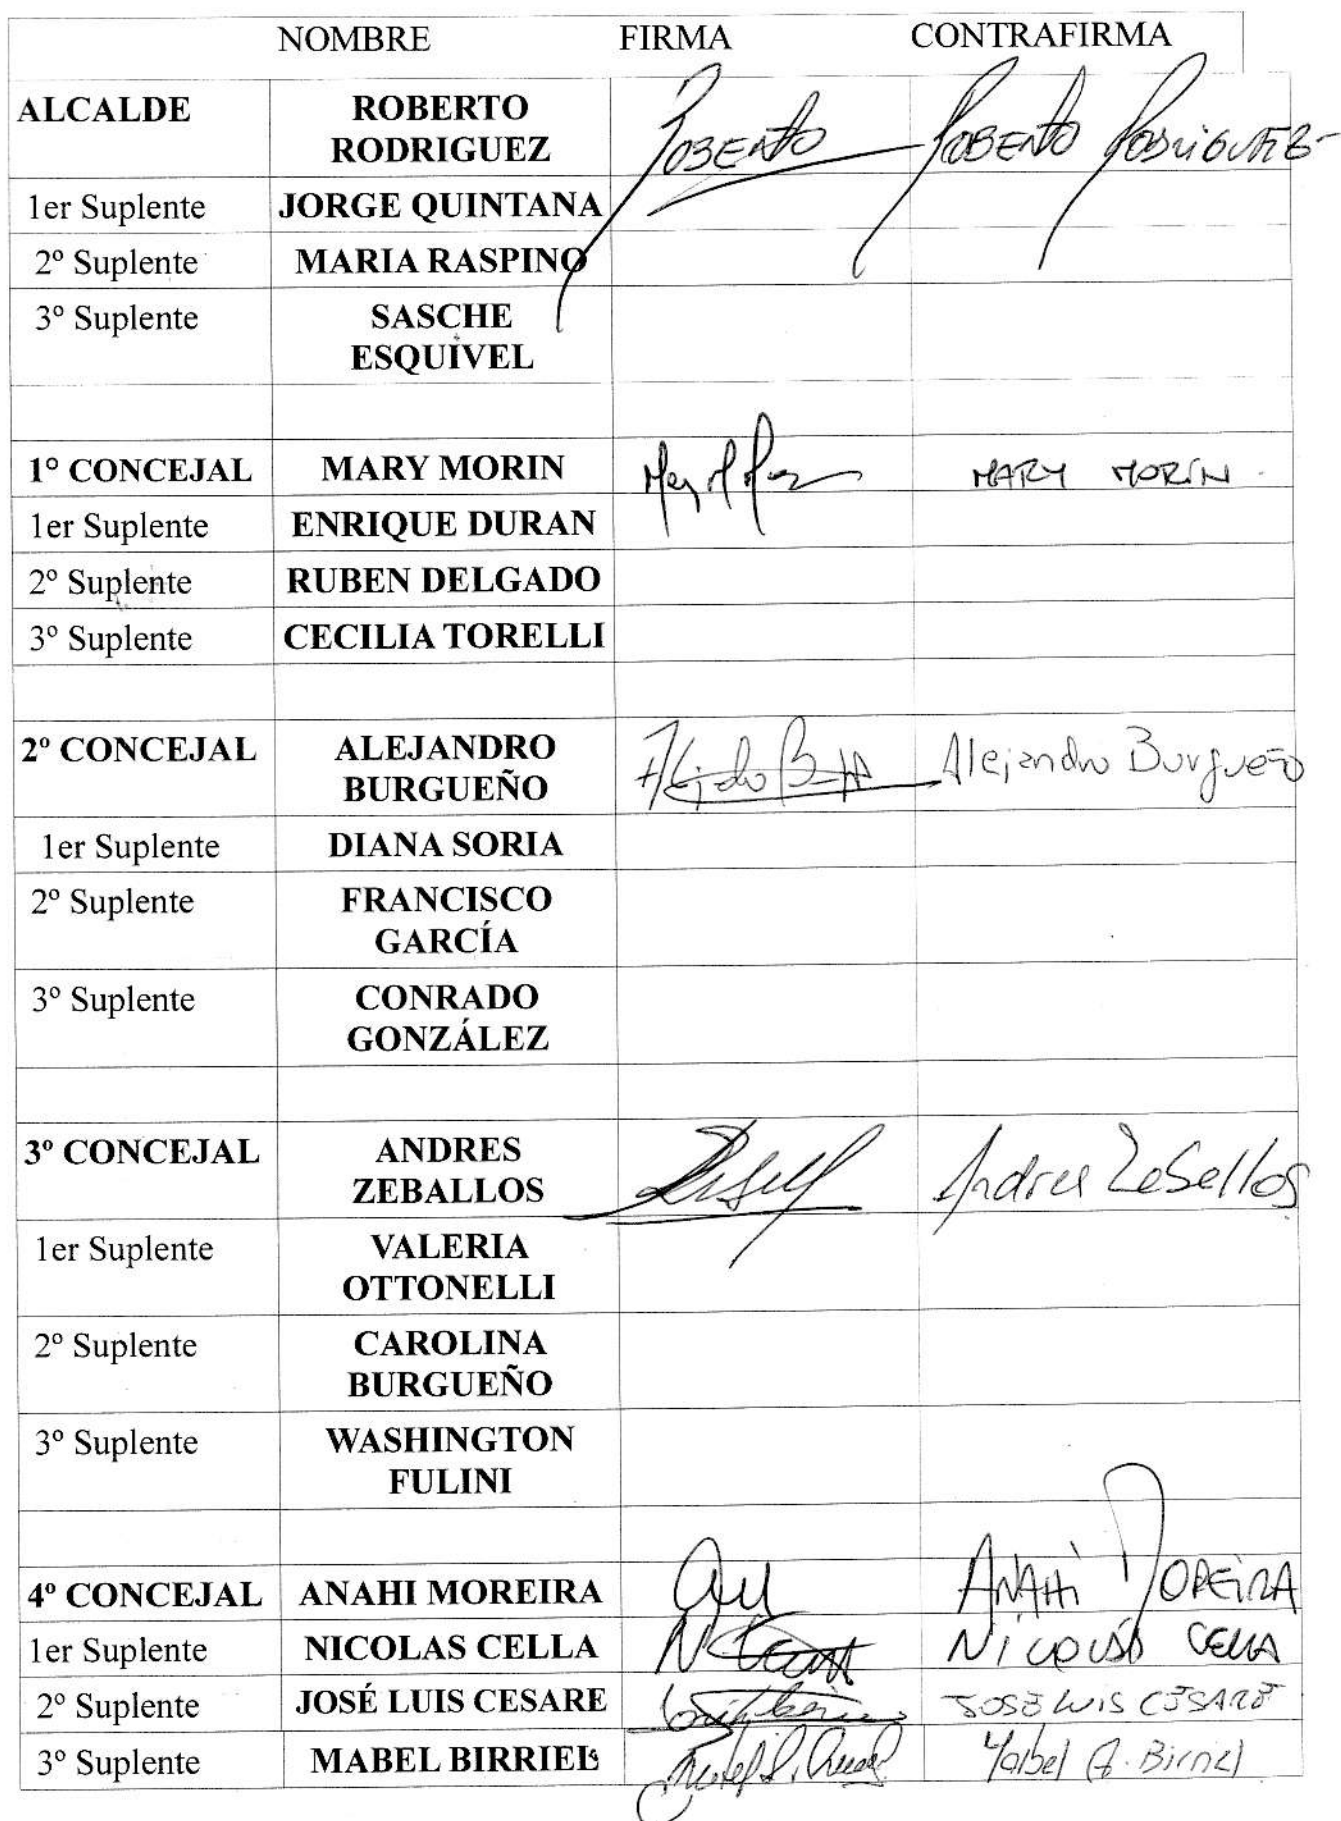 NOMBRE FIRMA CONTRAFIRMA
ALCALDE ROBERTO
RODRIGUEZ ROBERTO ROBERTO RODRIGUEZ
1er Suplente JORGE QUINTANA
2º Suplente MARIA RASPINO
3º Suplente SASCHE
ESQUIVEL
1º CONCEJAL MARY MORIN MARY MORIN
1er Suplente ENRIQUE DURAN
2º Suplente RUBEN DELGADO
3º Suplente CECILIA TORELLI
2º CONCEJAL ALEJANDRO
BURGUEÑO Alejandro Burgueño
1er Suplente DIANA SORIA
2º Suplente FRANCISCO
GARCÍA
3º Suplente CONRADO
GONZÁLEZ
3º CONCEJAL ANDRES
ZEBALLOS Andres Zeballos
1er Suplente VALERIA
OTTONELLI
2º Suplente CAROLINA
BURGUEÑO
3º Suplente WASHINGTON
FULINI
4º CONCEJAL ANAHI MOREIRA ANAHI MOREIRA
1er Suplente NICOLAS CELLA NICOLÁS CELLA
2º Suplente JOSÉ LUIS CESARE JOSÉ LUIS CESARE
3º Suplente MABEL BIRRIEL Mabel A. Birriel